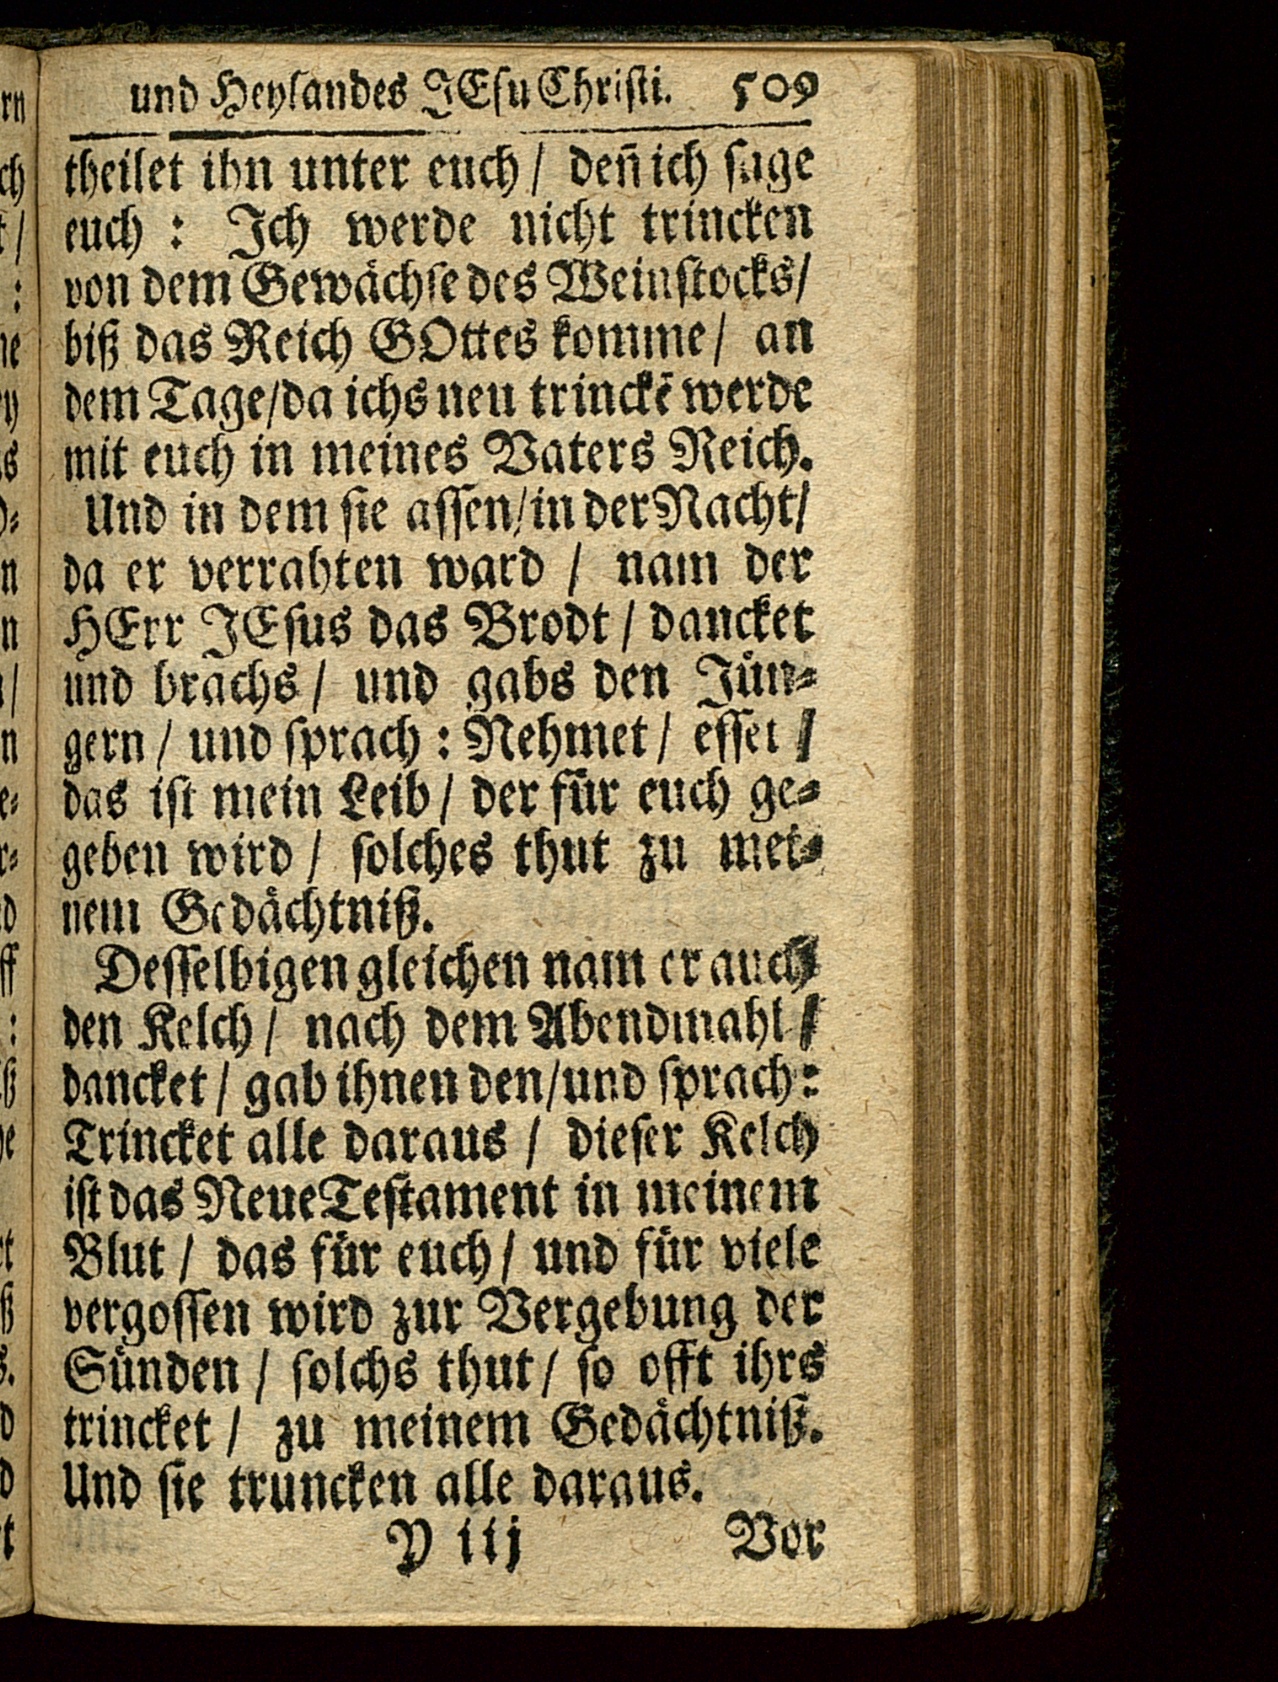 und Heylandes JEsu Christi. 509
theilet ihn unter euch / deñ ich sage
euch : Ich werde nicht trincken
von dem Gewächse des Weinstocks /
biß das Reich GOttes komme / an
dem Tage / da ichs neu trinckē werde
mit euch in meines Vaters Reich.
Und in dem sie assen / in der Nacht /
da er verrahten ward / nam der
HErr JEsus das Brodt / dancket
und brachs / und gabs den Jün⸗
gern / und sprach : Nehmet / esset /
das ist mein Leib / der für euch ge⸗
geben wird / solches thut zu mei⸗
nem Gedächtniß.
Desselbigen gleichen nam er auch
den Kelch / nach dem Abendmahl /
dancket / gab ihnen den / und sprach :
Trincket alle daraus / dieser Kelch
ist das Neue Testament in meinem
Blut / das für euch / und für viele
vergossen wird zur Vergebung der
Sünden / solchs thut / so offt ihrs
trincket / zu meinem Gedächtniß.
Und sie truncken alle daraus.
Y iij Vor